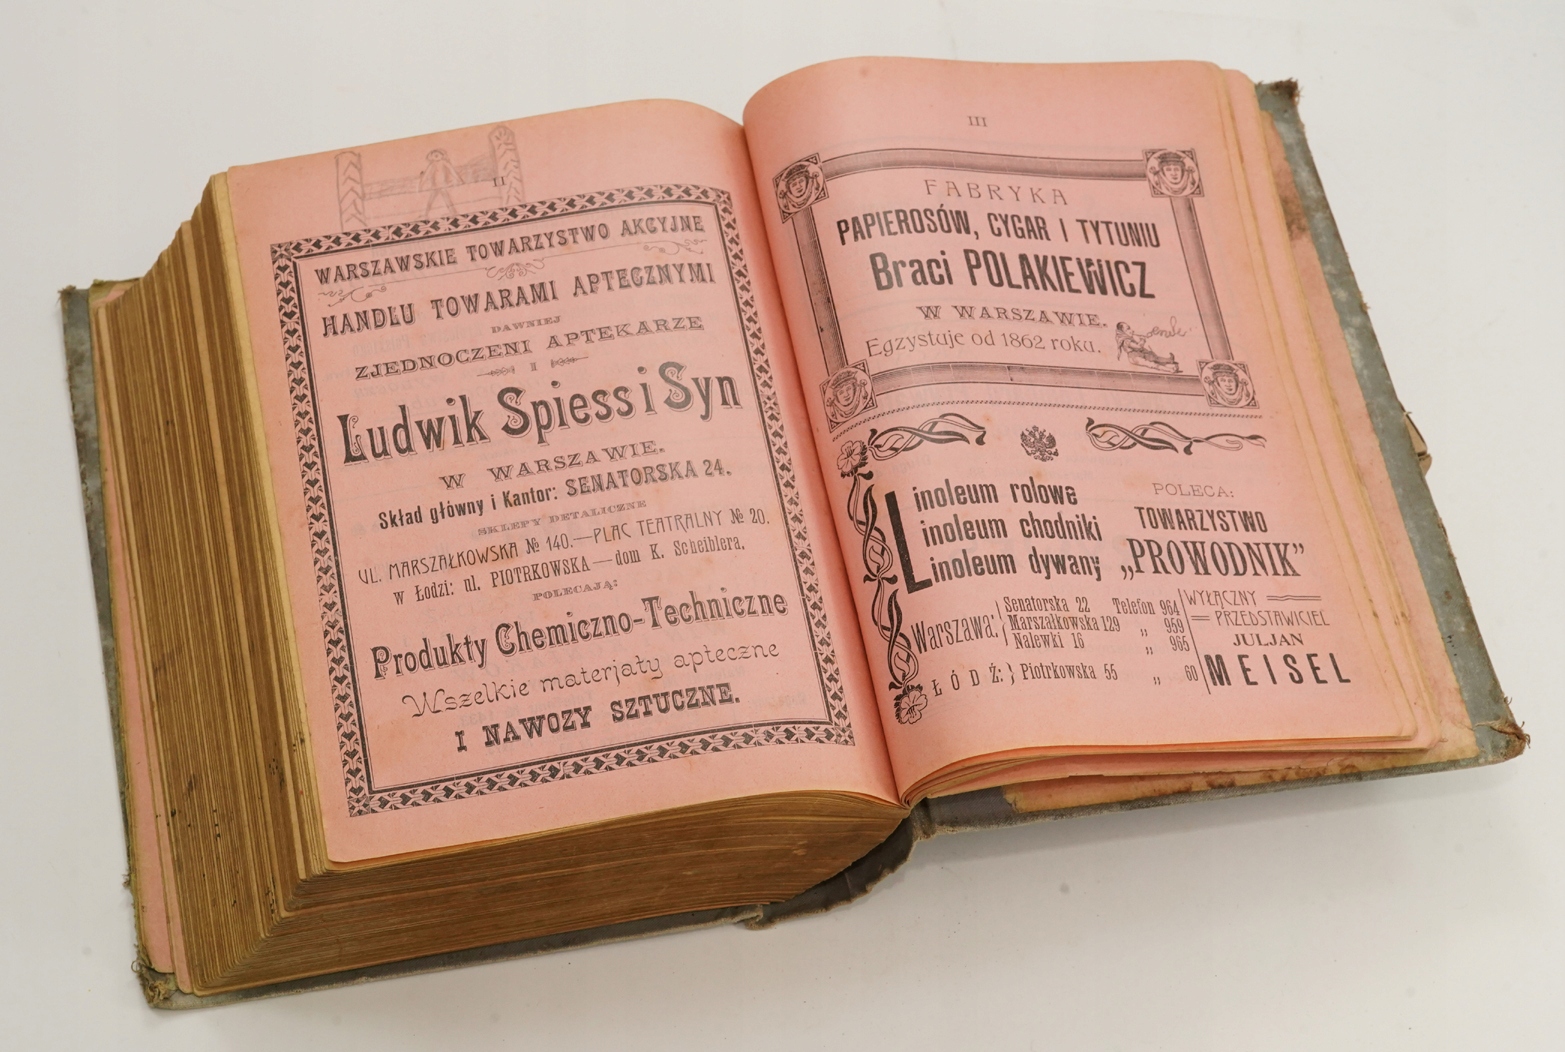 II
WARSZAWSKIE TOWARZYSTWO AKCYJNE
HANDLU TOWARAMI APTECZNYMI
DAWNIEJ
ZJEDNOCZENI APTEKARZE
I
Ludwik Spiess i Syn
W WARSZAWIE.
Skład główny i Kantor: SENATORSKA 24.
SKLEPY DETALICZNE
UL. MARSZAŁKOWSKA № 140.—PLAC TEATRALNY № 20.
w Łodzi: ul. PIOTRKOWSKA—dom K. Scheiblera.
POLECAJĄ:
Produkty Chemiczno-Techniczne
Wszelkie materjały apteczne
I NAWOZY SZTUCZNE.
III
FABRYKA
PAPIEROSÓW, CYGAR I TYTUNIU
Braci POLAKIEWICZ
W WARSZAWIE.
Egzystuje od 1862 roku.
Linoleum rolowe
Linoleum chodniki
Linoleum dywany
POLECA:
TOWARZYSTWO
„PROWODNIK”
Warszawa: Senatorska 22 Telefon 964
Marszałkowska 129 „ 959
Nalewki 16 „ 965
ŁÓDŹ: Piotrkowska 55 „ 60
WYŁĄCZNY
PRZEDSTAWICIEL
JULJAN
MEISEL